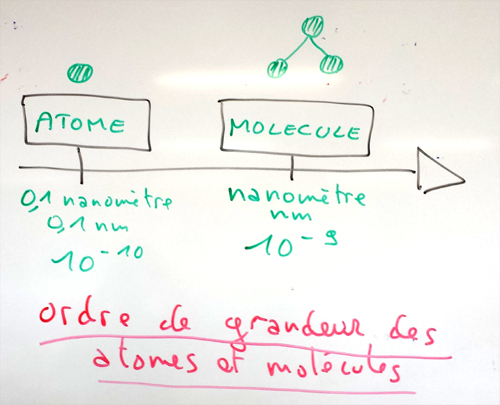 ATOME
MOLECULE
0,1 nanomètre
0,1 nm
10⁻¹⁰
nanomètre
nm
10⁻⁹
ordre de grandeur des
atomes et molécules